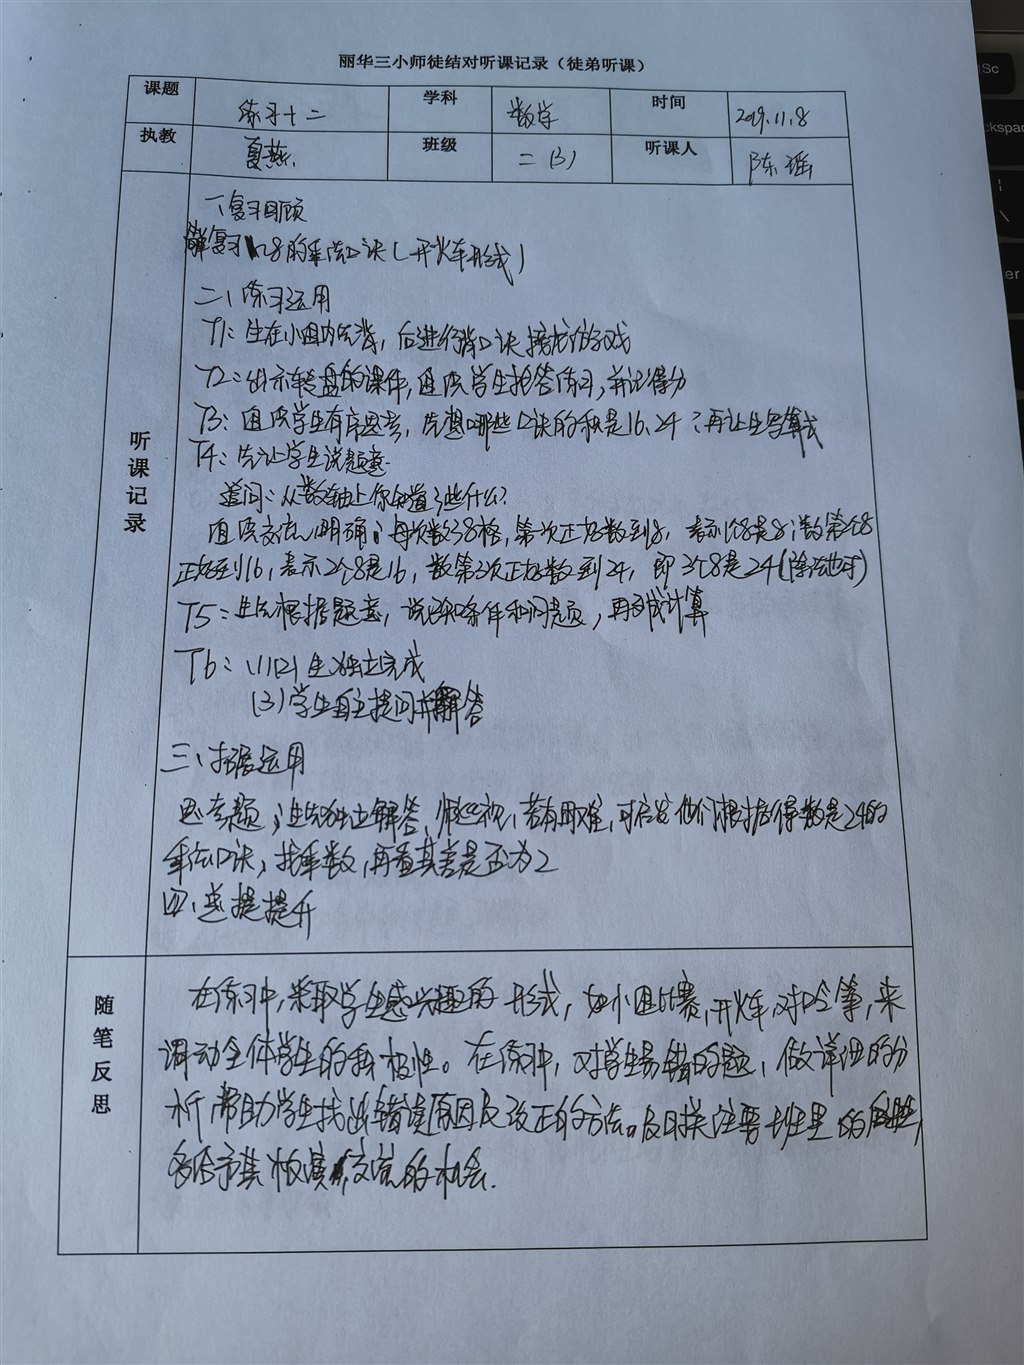 丽华三小师徒结对听课记录（徒弟听课）
课题 练习十二 学科 数学 时间 2019.11.8
执教 夏燕 班级 二(3) 听课人 陈瑶
听课记录
一、复习回顾
复习1~8的乘法口诀(开火车形式)
二、练习运用
T1: 生在小组内先背，后进行背口诀接龙的游戏
T2: 出示转盘的课件，直接学生抢答练习，并记得分
T3: 学生有序思考，先想哪些口诀的积是16、24；再让生写算式
T4: 先让学生说题意
追问: 从数轴上你知道了些什么?
交流明确: 每次数8格，第一次正好数到8，表示1个8是8；数第2个8
正好到16，表示2个8是16，数第3次正好数到24，即3个8是24
T5: 生先根据题意，说说条件和问题，再列式计算
T6: (1)(2)生独立完成
(3)学生自主提问并解答
三、拓展运用
思考题: 生先独立解答，师巡视，若有困难，可启发他们根据得数是24的
乘法口诀，找乘数，再看其差是否为2
四、总提提升
随笔反思
在练习中，采取学生感兴趣的形式，如小组比赛，开火车，对口令等，来
调动全体学生的积极性。在练习中，对学生易错的题，做详细的分
析帮助学生找出错误原因及改正的方法。及时关注要班里的
多给予其板演，交流的机会.